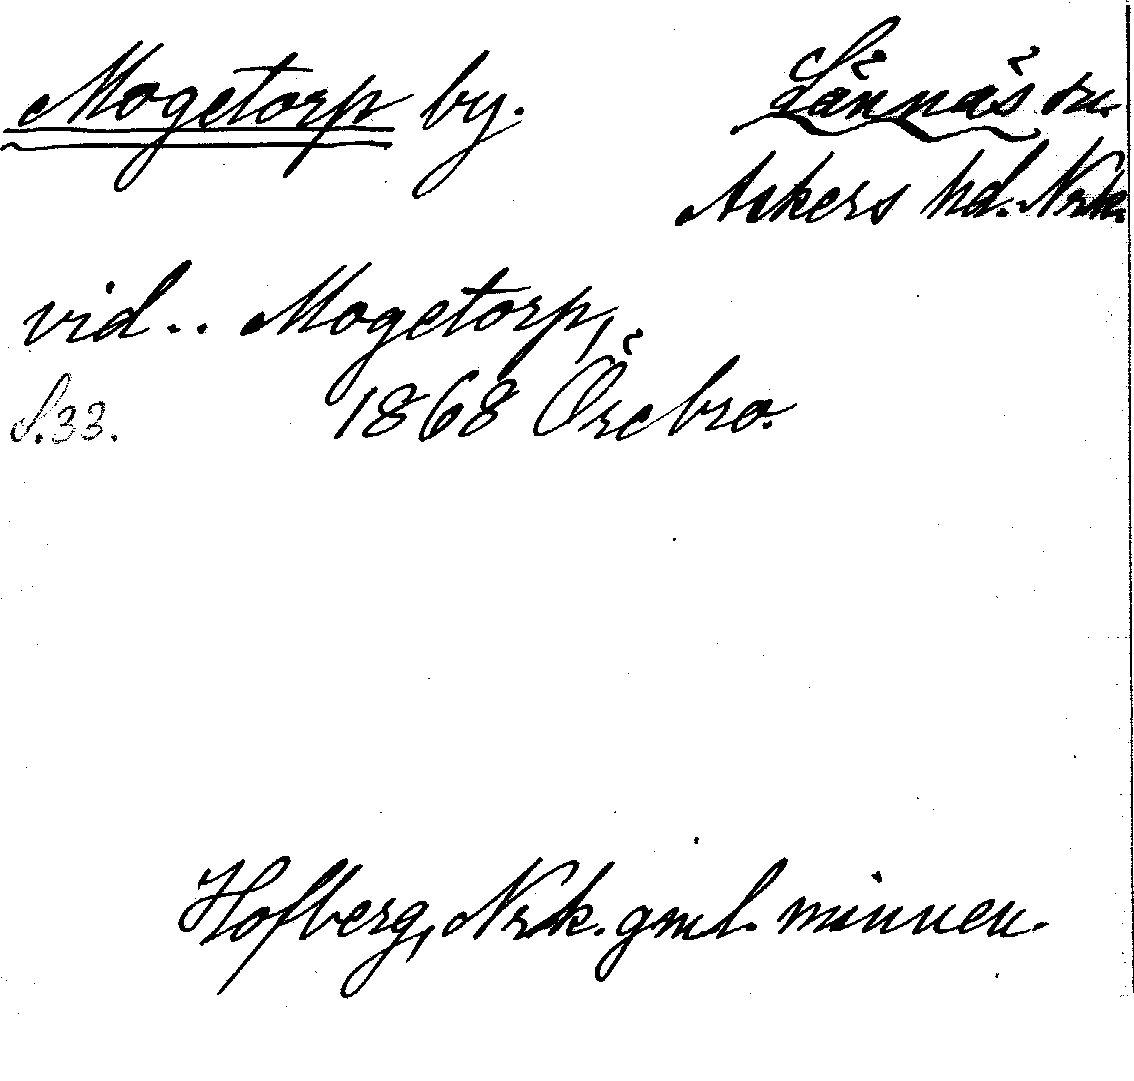 Mogetorp by. Lännäs sn.
Askers hd. Nrk.
vid .. Mogetorp,
S. 33. 1868 Örebro.
Hofberg, Nrk. gml. minnen.